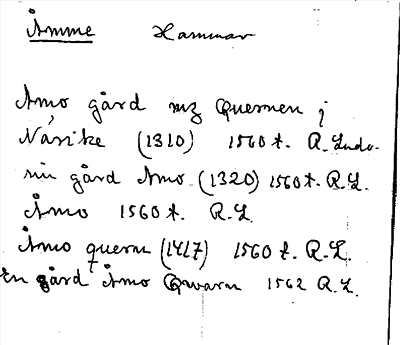 Åmme Hammar
Åmo gård mz Quernen j
Närike (1310) 1560 t. R. Ludo-
min gård Åmo (1320) 1560 t. R.L.
Åmo 1560 t. R.L.
Åmo quern (1417) 1560 t. R.L.
En gård Åmo Qwarn 1562 R.L.